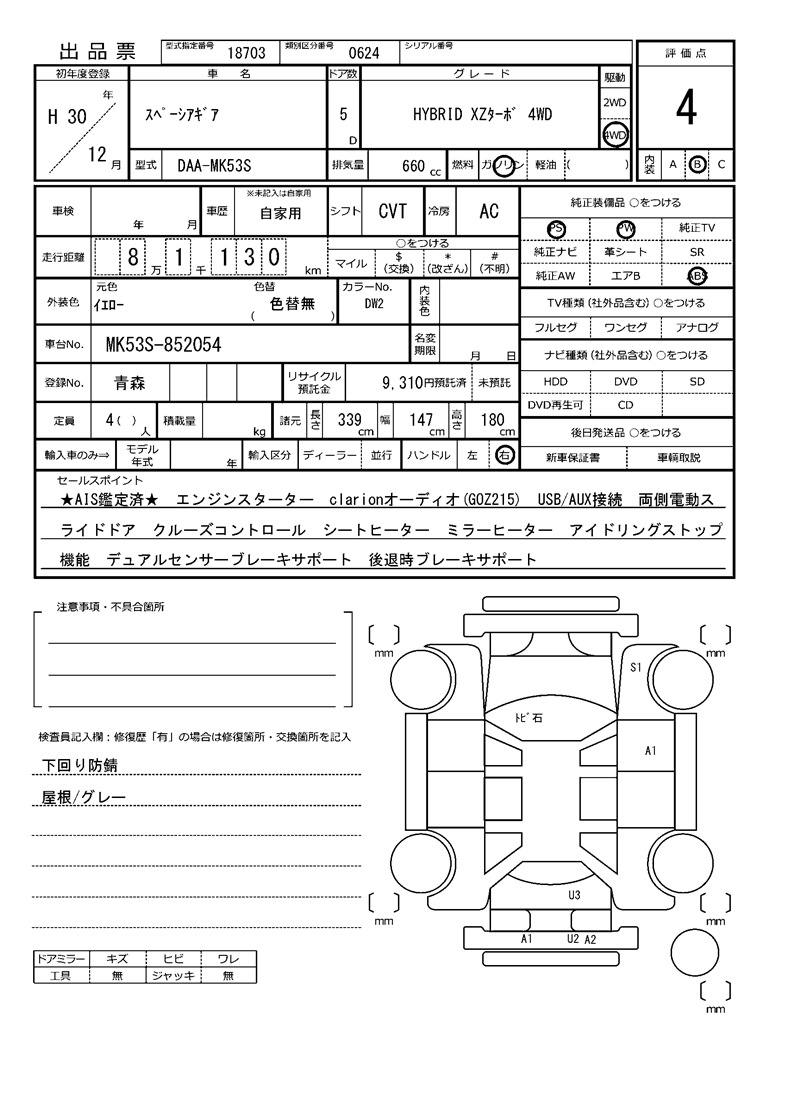 出品票 型式指定番号 18703 類別区分番号 0624 シリアル番号
評価点
初年度登録 車名 ドア数 グレード 駆動
H 30 年 12 月
スペーシアギア
5 D
HYBRID XZターボ 4WD
2WD
4WD
4
型式 DAA-MK53S 排気量 660 cc 燃料 ガソリン 軽油 ( )
内装 A B C
車検 年 月 車歴 ※未記入は自家用 自家用 シフト CVT 冷房 AC
純正装備品 ○をつける
PS PW 純正TV
純正ナビ 革シート SR
純正AW エアB ABS
走行距離 8 万 1 千 1 3 0 km
○をつける
マイル $(交換) *(改ざん) #(不明)
外装色 元色 イエロー 色替 ( 色替無 ) カラーNo. DW2 内装色
TV種類(社外品含む) ○をつける
フルセグ ワンセグ アナログ
車台No. MK53S-852054 名変期限 月 日
ナビ種類(社外品含む) ○をつける
HDD DVD SD
DVD再生可 CD
登録No. 青森 リサイクル預託金 9,310円預託済 未預託
定員 4( ) 人 積載量 kg 諸元 長さ 339 cm 幅 147 cm 高さ 180 cm
後日発送品 ○をつける
新車保証書 車輌取説
輸入車のみ⇒ モデル年式 年 輸入区分 ディーラー 並行 ハンドル 左 右
セールスポイント
★AIS鑑定済★ エンジンスターター clarionオーディオ(GOZ215) USB/AUX接続 両側電動ス
ライドドア クルーズコントロール シートヒーター ミラーヒーター アイドリングストップ
機能 デュアルセンサーブレーキサポート 後退時ブレーキサポート
注意事項・不具合箇所
検査員記入欄：修復歴「有」の場合は修復箇所・交換箇所を記入
下回り防錆
屋根/グレー
ドアミラー キズ ヒビ ワレ
工具 無 ジャッキ 無
mm
mm
S1
トビ石
A1
U3
A1 U2 A2
mm
mm
mm